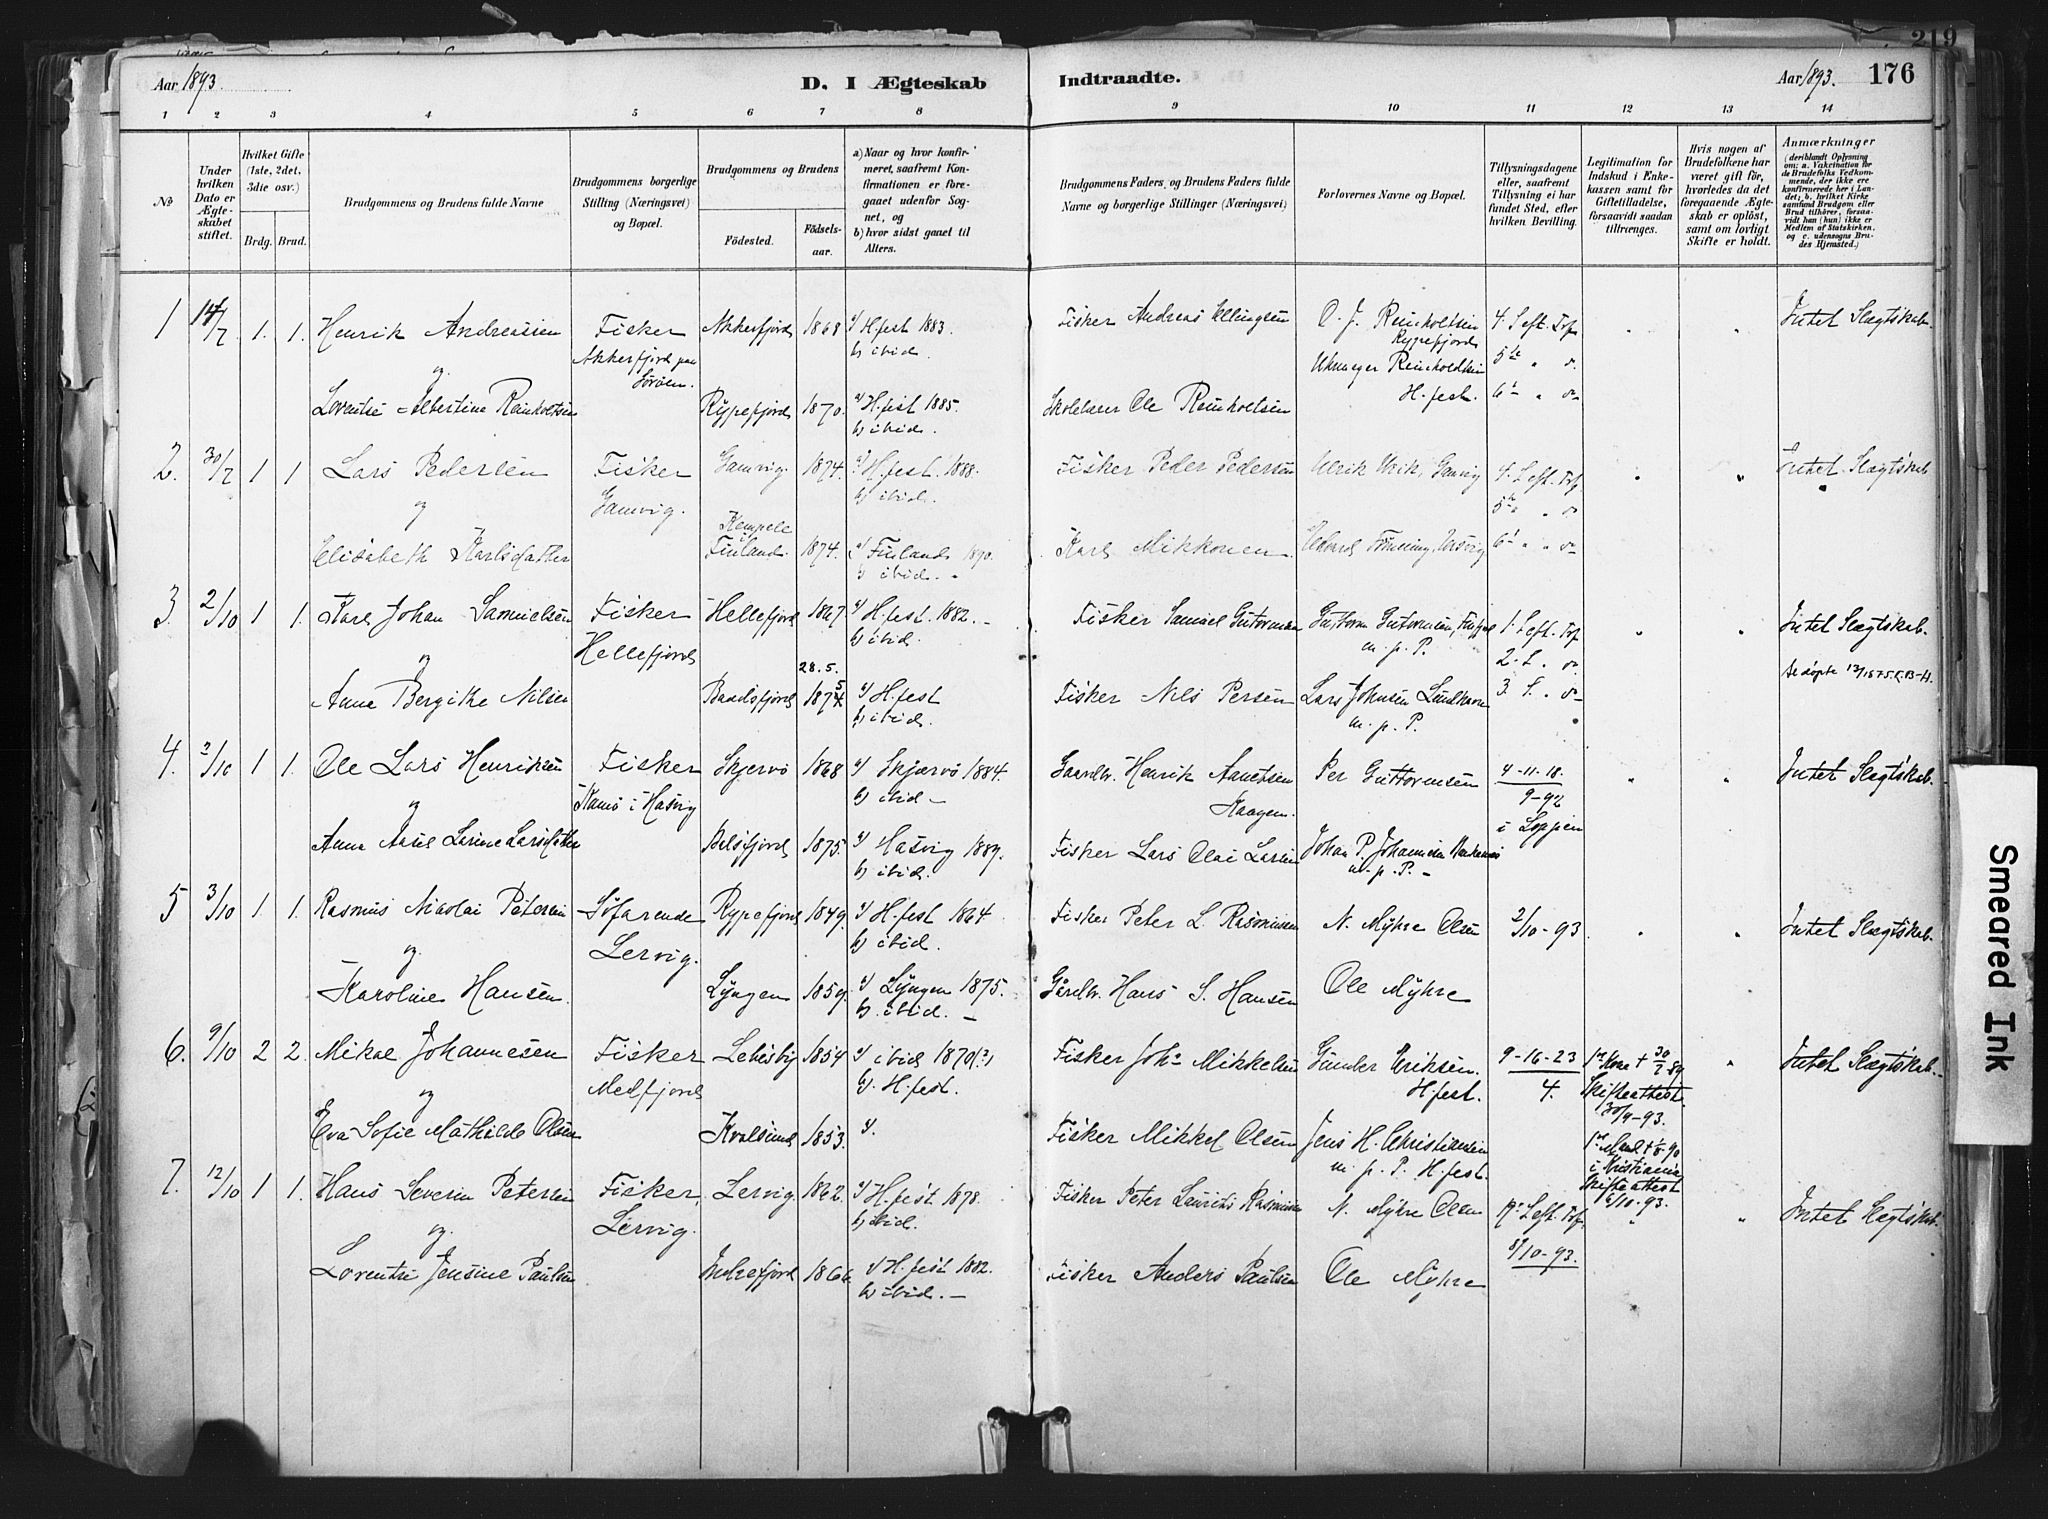 219
Aar 1893.
D. I Ægteskab
Indtraadte.
Aar 1893.
176
1 2 3 4 5 6 7 8 9 10 11 12 13 14
No
Under hvilken Dato er Ægteskabet stiftet.
Hvilket Gifte (1ste, 2det, 3die osv.)
Brdg. Brud.
Brudgommens og Brudens fulde Navne
Brudgommens borgerlige Stilling (Næringsvei) og Bopæl.
Brudgommens og Brudens
Fødested.
Fødselsaar.
a) Naar og hvor konfirmeret, saafremt Konfirmationen er foregaaet udenfor Sognet, og
b) hvor sidst gaaet til Alters.
Brudgommens Faders og Brudens Faders fulde Navne og borgerlige Stillinger (Næringsvei)
Forlovernes Navne og Bopæl.
Tillysningsdagene eller, saafremt Tillysning ei har fundet Sted, efter hvilken Bevilling.
Legitimation for Indskud i Enkekassen samt for Giftetilladelse, forsaavidt saadan tiltrænges.
Hvis nogen af Brudefolkene har været gift før, hvorledes da det foregaaende Ægteskab er opløst, samt om lovligt Skifte er holdt.
Anmærkninger
(deriblandt Oplysning om: a. Vakcination for de Brudefolks Vedkommende, der ikke ere konfirmerede her i Landet; b. hvilket Kirkesamfund Brudgom eller Brud tilhører, forsaavidt han (hun) ikke er Medlem af Statskirken, og c. udensogns Brudes Hjemsted.)
1 14/7 1. 1. Henrik Andreassen Fisker Akkerfjord 1868 a) H.fest 1883. Fisker Andreas Ellingsen O. J. Reinholtsen 4. S. eft. Trf. Intet Slægtskab.
og Akkerfjord paa Sørøen. b) ibid. Rypefjord 5te " "
Lorentse Albertine Reinholtsen Rypefjord 1870. a) H.fest 1885. Ole Reinholtsen Reinholdtsen H.fest. 6te " "
b) ibid.
2. 30/7 1 1 Lars Pedersen Fisker Gamvig 1874. a) H.fest 1888. Fisker Peder Pedersen Ulrik Ulrik, Gamvig 4. S. eft. Trf. Intet Slægtskab
og Gamvig. b) ibid. 5te " "
Elisabeth Karlsdatter Kempele i Finland 1874. a) Finland 1890. Karl Mikkonen 6te " "
b) ibid.
3. 2/10 1 1. Karl Johan Samuelsen Fisker Hellefjord 1867 a) H.fest. 1882. Fisker Samuel Gutormsen Guttorm Gutormsen, 1. S. eft. Trf. Intet Slægtskab.
og Hellefjord b) ibid. m. p. P. 2. S. "
28.5.
Anne Bergithe Nilsen Baadsfjord 1875 a) H.fest Fisker Nils Persen Lars Johnsen m. p. P. 3. S. "
b) ibid.
4. 2/10 1 1. Ole Lars Henriksen Fisker Skjervø 1868 a) Skjærvø 1884. Gaardbr. Henrik Kaagen. Per Guttormsen 4-11-18. 9-92 i Loppen Intet Slægtskab.
og i Hasvig b) ibid
Anna Larsdatter 1875. a) Hasvig 1889. Fisker Lars Olai Larsen Johan P. Johannesen m. p. P.
b) ibid.
5 3/10 1. 1. Rasmus Nicolai Petersen Søfarende Rypefjord 1849. a) H.fest 1864 Fisker Peter L. Rasmussen N. Myhre Olsen 2/10-93 Intet Slægtskab.
og Lervig. b) ibid.
Karoline Hansen Lyngen 1859. a) Lyngen 1875. Gårdbr. Hans S. Hansen Ole Myhre
b) ibid.
6. 9/10 2 2. Mikal Johannesen Fisker Lebesby 1854 a) ibid 1870(?) Fisker Johs Mikkelsen Gunder Eriksen. 9-16-23 1ste Kone † 30/7 89 Intet Slægtskab.
og Medfjord b) H.fest. H.fest. 4. Skifteattest. 30/9-93.
Eva Sofie Mathilde Olsen Kvalsund 1853. a) Fisker Mikkel Olsen Jens H. Christiansen m. p. P. H.fest. 1ste Mand † 90 i Kristiania Skifteattest 6/10-93.
7. 12/10 1 1. Hans Severin Petersen Fisker, Lervig. 1862. a) H.fest 1878. Fisker Peter Laurits Rasmussen N. Myhre Olsen 19. S. eft. Trf. Intet Slægtskab.
og Lervig. b) ibid. 8/10-93.
Lorentse Jensine Paulsen 1866 a) H.fest 1882. Fisker Anders Paulsen Ole Myhre
b) ibid.
Smeared Ink